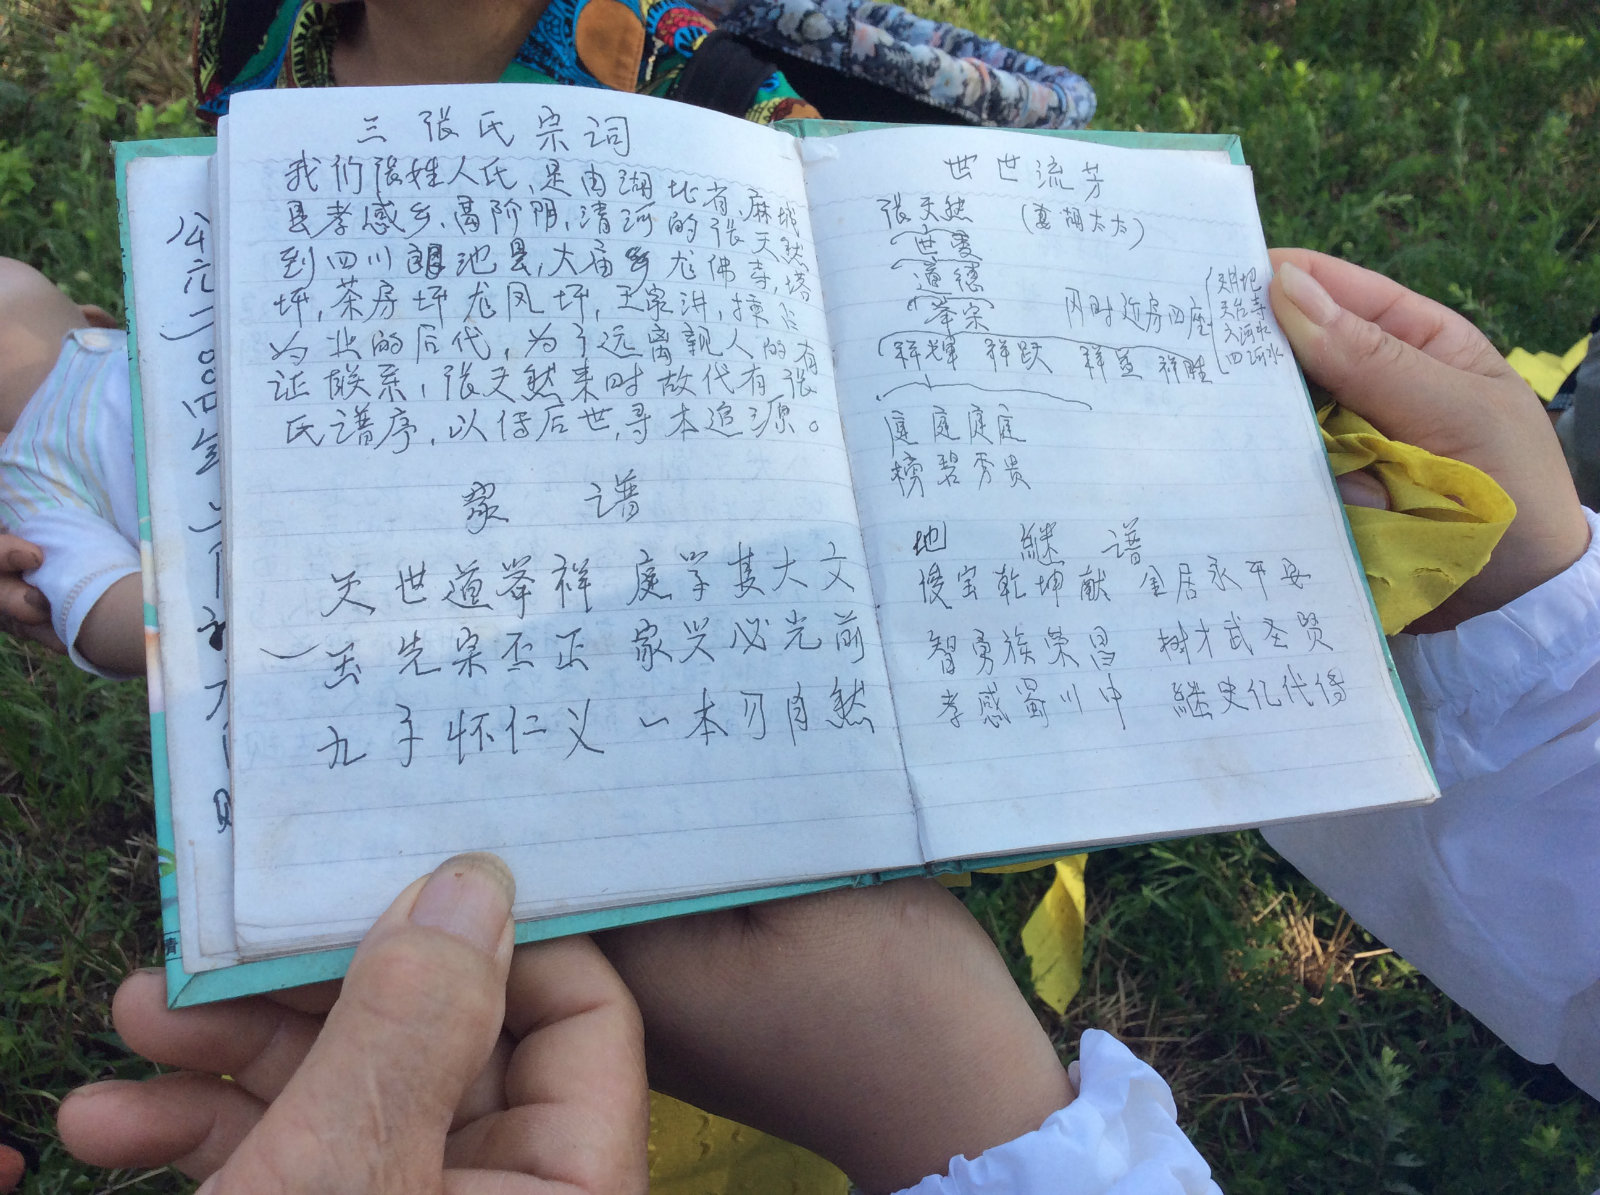 三 张氏宗词
我们张姓人氏,是由湖北省,麻城
县孝感乡,高阶阴,清河的张天然
到四川 池县,大庙乡龙佛寺,塔
坪,茶房坪龙凤坪,王家洪,
为业的后代,为了远离亲人的有
证联系,张天然来时故代有张
氏谱序,以传后世,寻本追源。
家 谱
天世道举祥 庭学隻大文
先宗丕正 家兴必光前
九子怀仁义 一本习自然
世世流芳
张天然 (妻胡太太)
世爱
道德
举宗
祥辉 祥跃 祥 祥胜
同时近房四座
天池
天台寺
文河水
四河水
庭 庭 庭 庭
榜 碧 秀 贵
地 継 谱
俊宝乾坤献 金居永平安
智勇族荣昌 树才武圣贤
孝感蜀川中 継史化代传